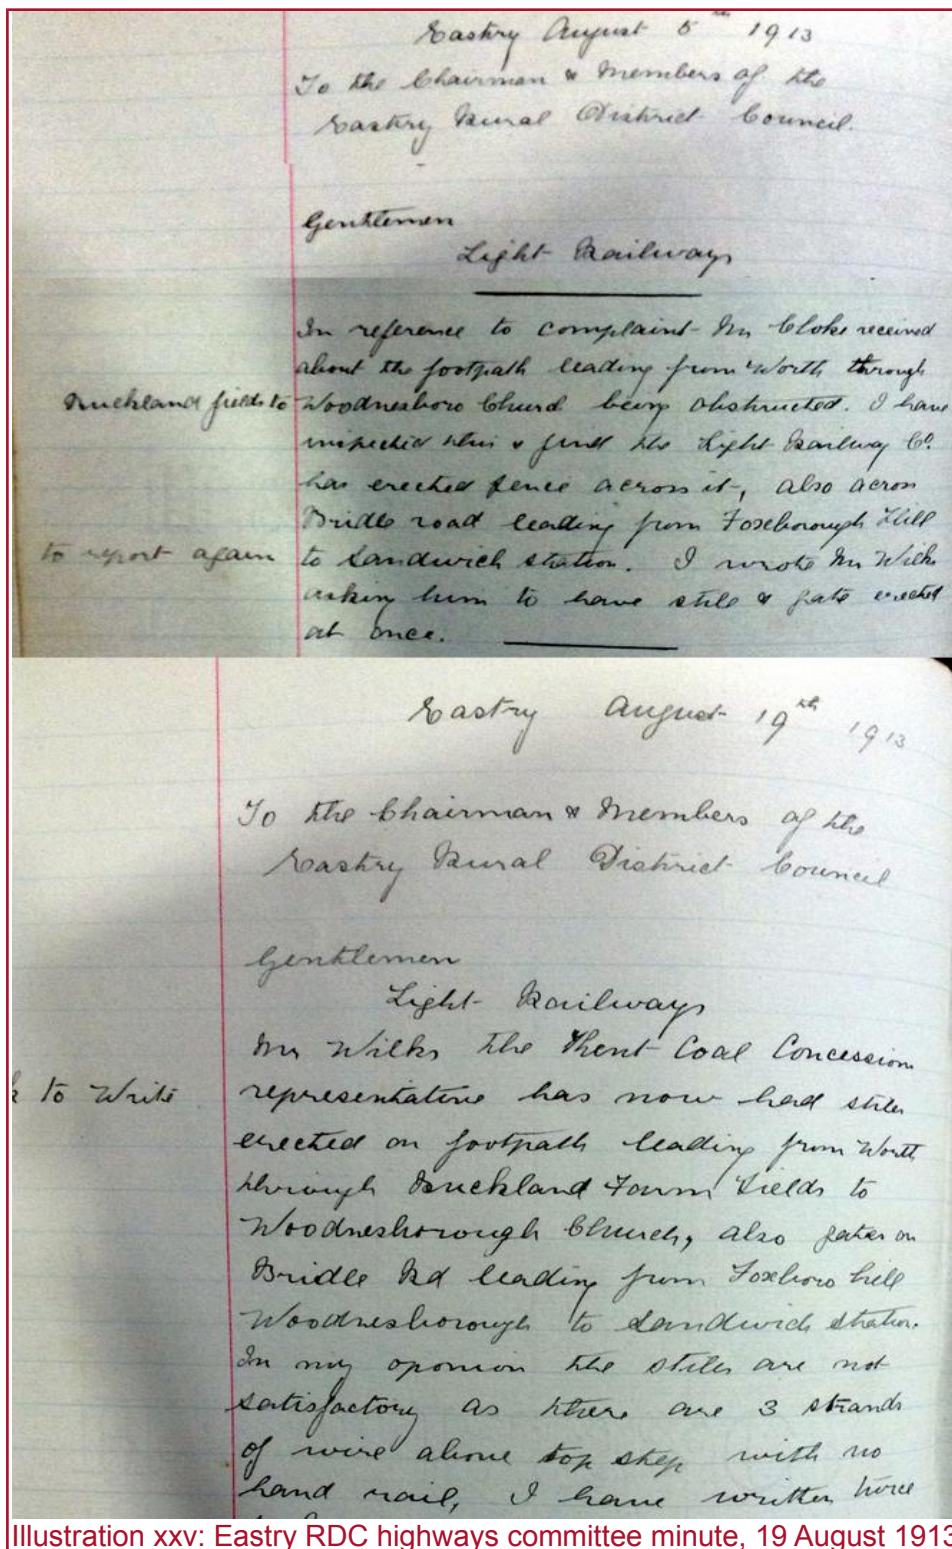 Eastry August 5th 1913
To the Chairman & Members of the
Eastry Rural District Council.
Gentlemen
Light Railways
In reference to complaint Mr Cloke received
about the footpath leading from Worth through
Buckland fields to Woodnesboro Church being obstructed. I have
inspected this & find the Light Railway Co.
has erected fence across it, also across
Bridle road leading from Foxborough Hill
to report again to Sandwich station. I wrote Mr Wilks
asking him to have stile & gate erected
at once.
Eastry August 19th 1913
To the Chairman & Members of the
Eastry Rural District Council
Gentlemen
Light Railways
Mr Wilks the Kent Coal Concession
to Write representative has now had stiles
erected on footpath leading from Worth
through Buckland Farm Fields to
Woodnesborough Church, also gates on
Bridle Rd leading from Foxboro hill
Woodnesborough to Sandwich station.
In my oponion the stiles are not
satisfactory as there are 3 strands
of wire above top step with no
hand rail, I have written twice
Illustration xxv: Eastry RDC highways committee minute, 19 August 1913